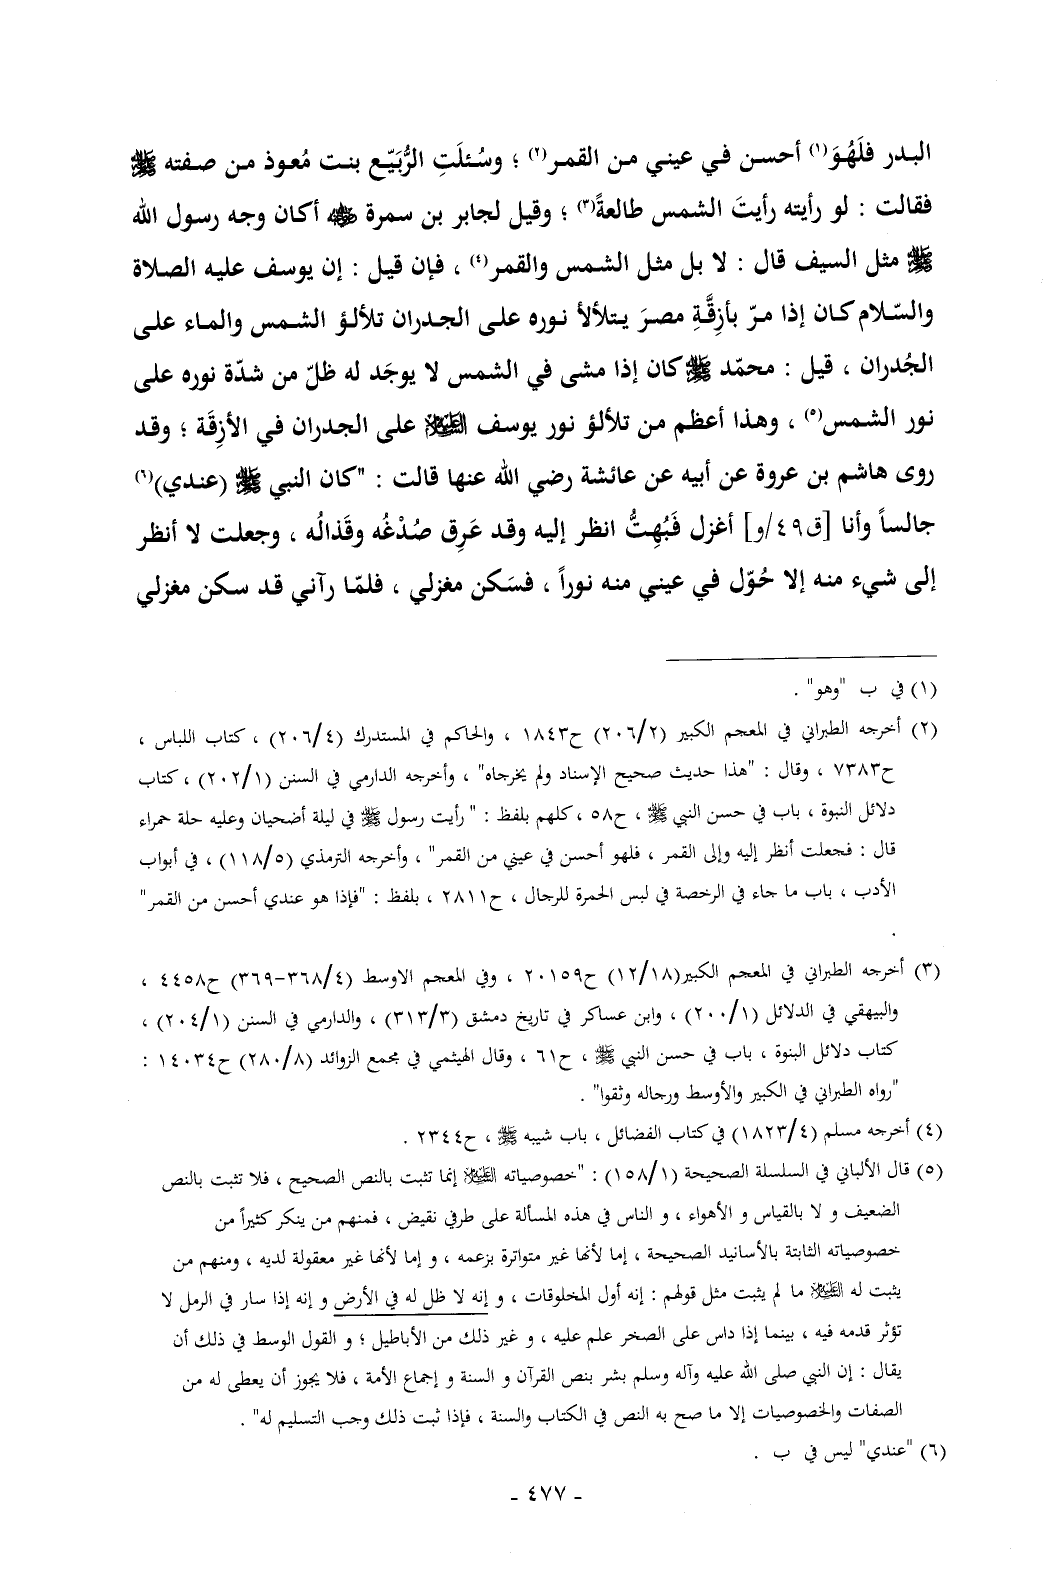 البدر فلَهُوَ(١) أحسن في عيني من القمر(٢) ؛ وسُئلَتِ الرُّبَيّع بنت مُعوذ من صفته ﷺ
فقالت : لو رأيته رأيتَ الشمس طالعةً(٣) ؛ وقيل لجابر بن سمرة ﷺ أكان وجه رسول الله
ﷺ مثل السيف قال : لا بل مثل الشمس والقمر(٤) ، فإن قيل : إن يوسف عليه الصلاة
والسّلام كان إذا مرّ بأزِقَّةِ مصرَ يتلألأ نوره على الجدران تلألؤ الشمس والماء على
الجُدران ، قيل : محمّد ﷺ كان إذا مشى في الشمس لا يوجَد له ظلّ من شدّة نوره على
نور الشمس(٥) ، وهذا أعظم من تلألؤ نور يوسف العَلَيْهِ السَّلام على الجدران في الأزِقَة ؛ وقد
روى هاشم بن عروة عن أبيه عن عائشة رضي الله عنها قالت : "كان النبي ﷺ (عندي)(٦)
جالساً وأنا [ق٤٩/و] أغزل فَبُهِتُّ انظر إليه وقد عَرِق صُدْغُه وقَذالُه ، وجعلت لا أنظر
إلى شيء منه إلا حُوّل في عيني منه نوراً ، فسَكن مغزلي ، فلمّا رآني قد سكن مغزلي
(١) في ب "وهو" .
(٢) أخرجه الطبراني في المعجم الكبير (٢٠٦/٢) ح١٨٤٣ ، والحاكم في المستدرك (٢٠٦/٤) ، كتاب اللباس ،
ح٧٣٨٣ ، وقال : "هذا حديث صحيح الإسناد ولم يخرجاه" ، وأخرجه الدارمي في السنن (٢٠٢/١) ، كتاب
دلائل النبوة ، باب في حسن النبي ﷺ ، ح٥٨ ، كلهم بلفظ : " رأيت رسول ﷺ في ليلة أضحيان وعليه حلة حمراء
قال : فجعلت أنظر إليه وإلى القمر ، فلهو أحسن في عيني من القمر" ، وأخرجه الترمذي (١١٨/٥) ، في أبواب
الأدب ، باب ما جاء في الرخصة في لبس الحمرة للرجال ، ح٢٨١١ ، بلفظ : "فإذا هو عندي أحسن من القمر"
.
(٣) أخرجه الطبراني في المعجم الكبير(١٢/١٨) ح٢٠١٥٩ ، وفي المعجم الاوسط (٣٦٨/٤-٣٦٩) ح٤٤٥٨ ،
والبيهقي في الدلائل (٢٠٠/١) ، وابن عساكر في تاريخ دمشق (٣١٣/٣) ، والدارمي في السنن (٢٠٤/١) ،
كتاب دلائل البنوة ، باب في حسن النبي ﷺ ، ح٦١ ، وقال الهيثمي في مجمع الزوائد (٢٨٠/٨) ح١٤٠٣٤ :
"رواه الطبراني في الكبير والأوسط ورجاله وثقوا" .
(٤) أخرجه مسلم (١٨٢٣/٤) في كتاب الفضائل ، باب شيبه ﷺ ، ح٢٣٤٤ .
(٥) قال الألباني في السلسلة الصحيحة (١٥٨/١) : "خصوصياته إنما تثبت بالنص الصحيح ، فلا تثبت بالنص
الضعيف و لا بالقياس و الأهواء ، و الناس في هذه المسألة على طرفي نقيض ، فمنهم من ينكر كثيراً من
خصوصياته الثابتة بالأسانيد الصحيحة ، إما لأنها غير متواترة بزعمه ، و إما لأنها غير معقولة لديه ، ومنهم من
يثبت له ما لم يثبت مثل قولهم : إنه أول المخلوقات ، و إنه لا ظل له في الأرض و إنه إذا سار في الرمل لا
تؤثر قدمه فيه ، بينما إذا داس على الصخر علم عليه ، و غير ذلك من الأباطيل ؛ و القول الوسط في ذلك أن
يقال : إن النبي صلى الله عليه وآله وسلم بشر بنص القرآن و السنة و إجماع الأمة ، فلا يجوز أن يعطى له من
الصفات والخصوصيات إلا ما صح به النص في الكتاب والسنة ، فإذا ثبت ذلك وجب التسليم له" .
(٦) "عندي" ليس في ب .
- ٤٧٧ -